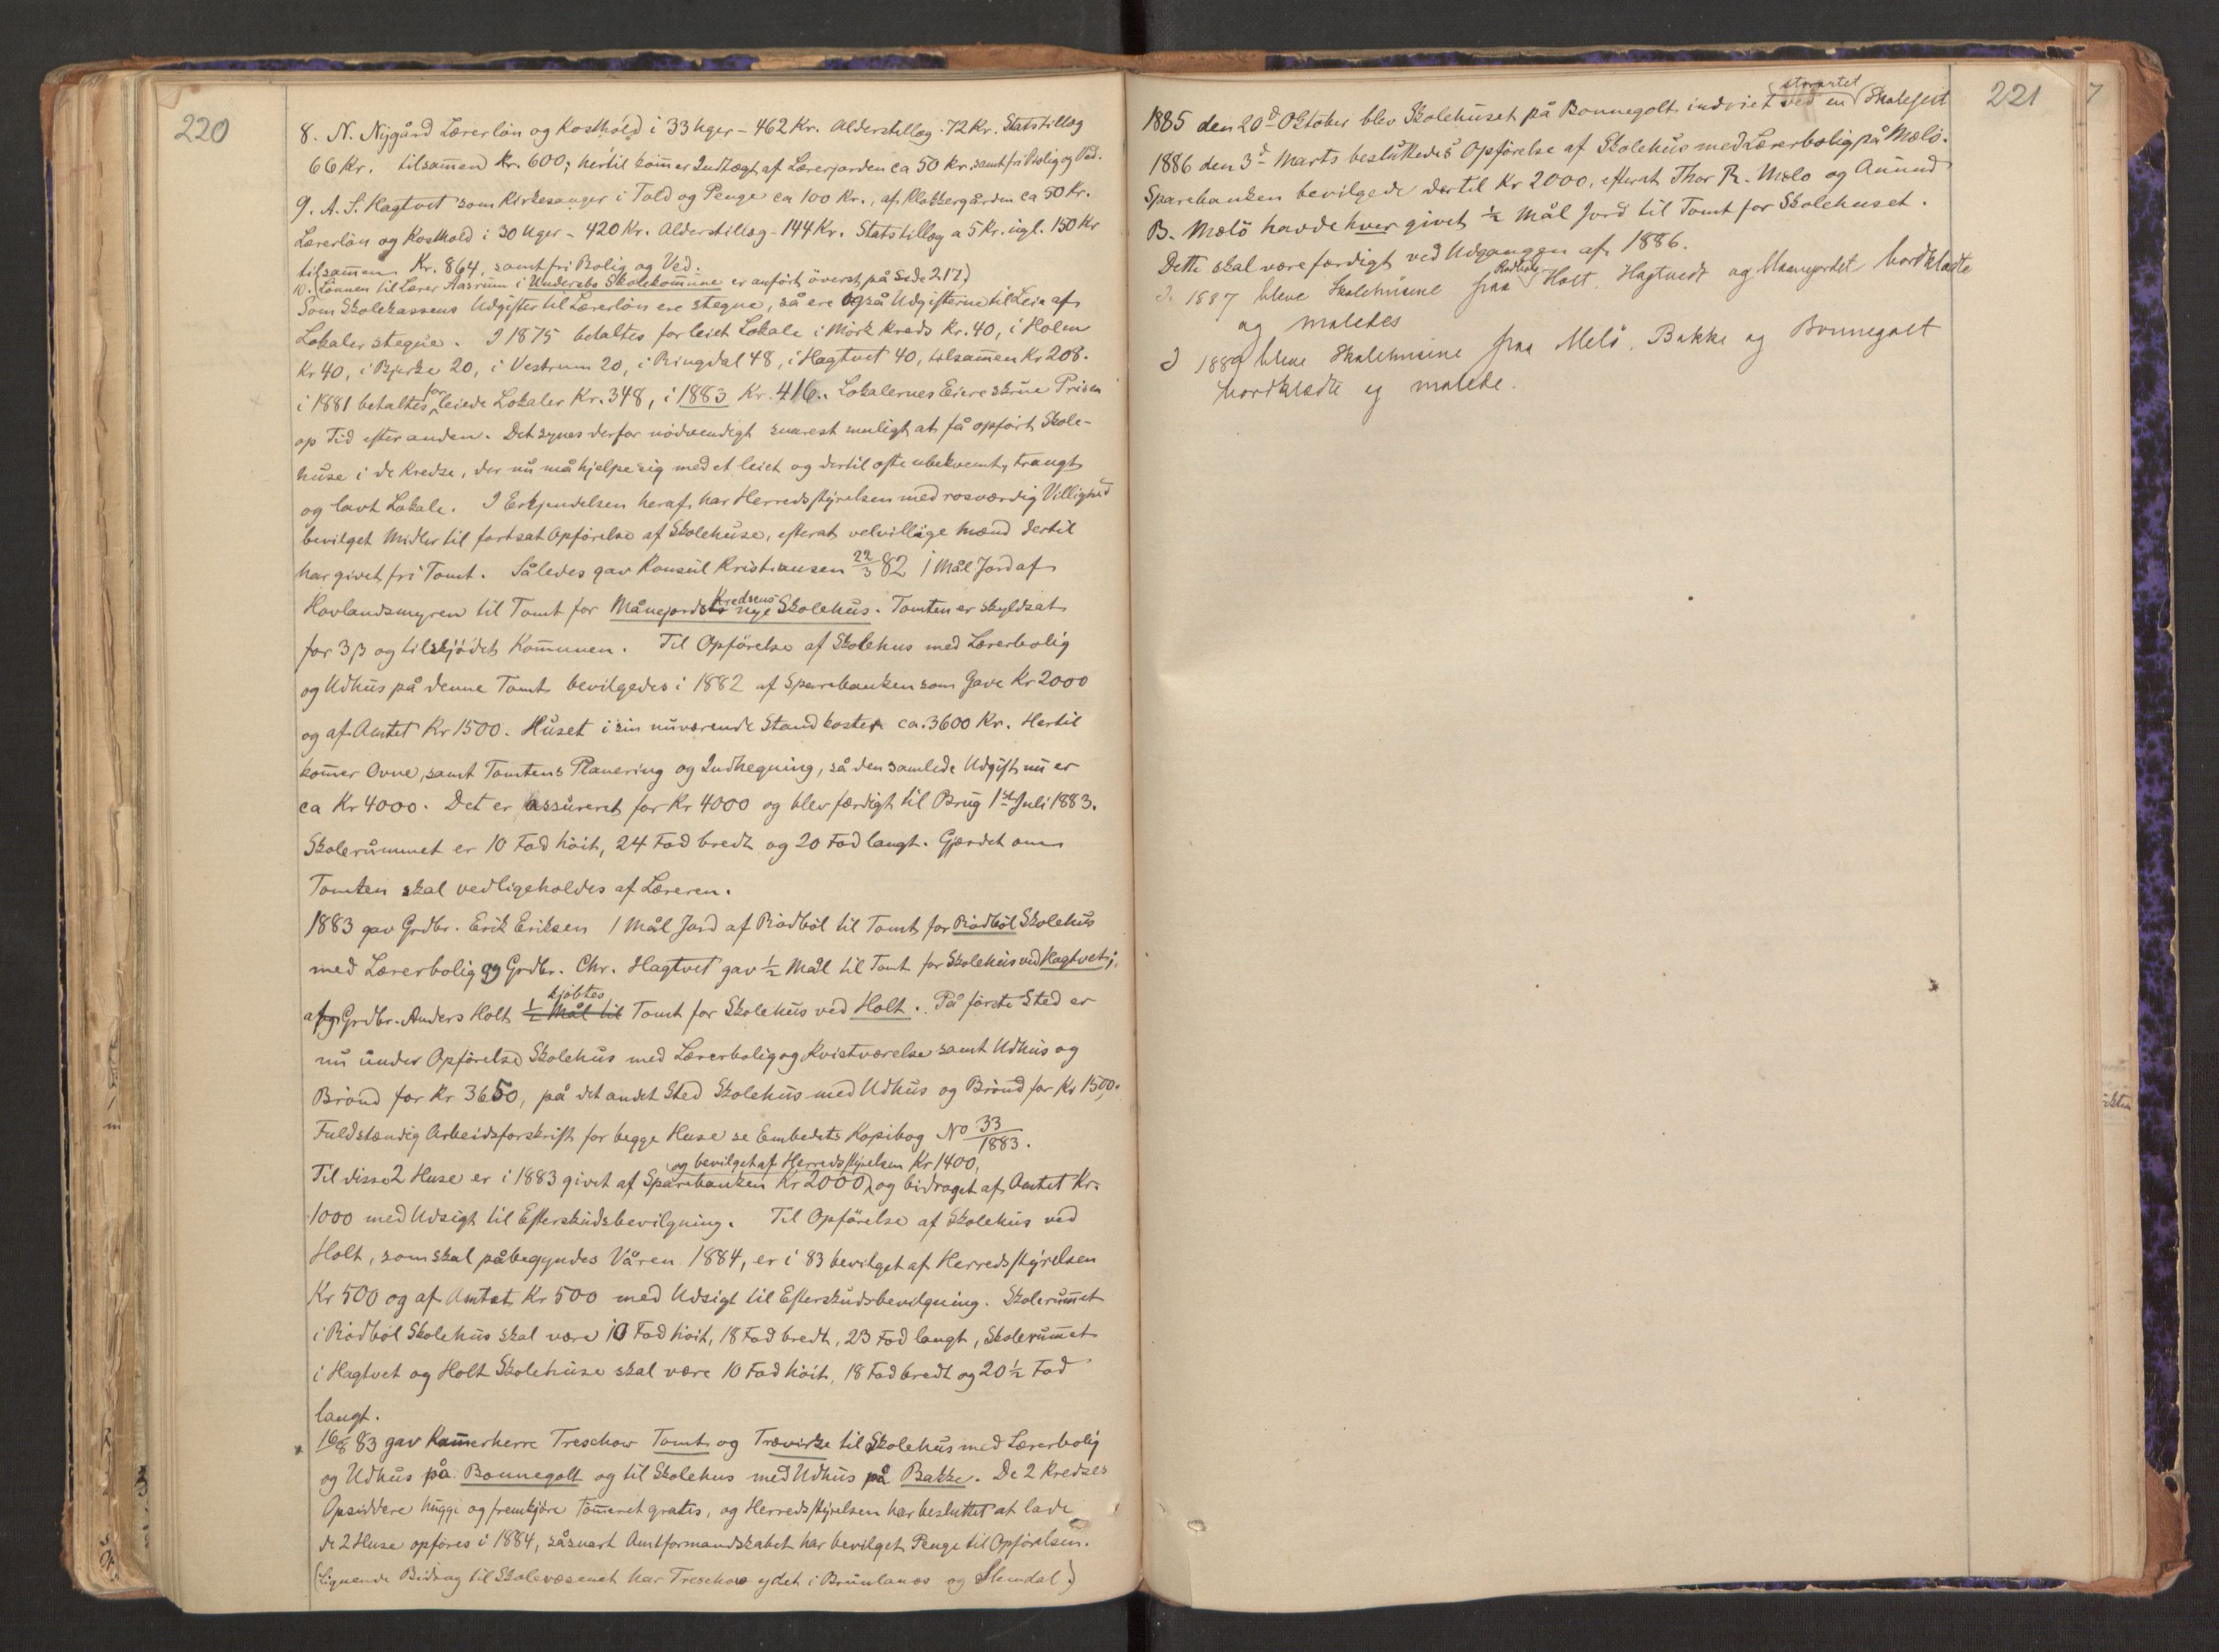 220
8. N. Nygård Lærerløn og Kosthold i 33 Uger - 462 Kr. Alderstillæg. 72 Kr. Statstillæg
66 Kr. tilsam̄en Kr. 600; hertil kom̄er Indtægt af Lærerjorden ca 50 Kr. samt fri Bolig og Ved.
9. A. S. Hagtvet som Kirkesanger i Told og Penge ca 100 Kr., af Klokkergården ca 50 Kr.
Lærerløn og Kosthold i 30 Uger - 420 Kr. Alderstillæg - 144 Kr. Statstillæg a 5 Kr. ugl. 150 Kr
tilsam̄en Kr. 864, samt fri Bolig og Ved.
10. (Lønnen til Lærer Aasrum i Undersbo Skolekom̄une er anført øverst på Side 217)
Som Skolekassens Udgifter til Lærerløn ere stegne, så ere også Udgifterne til Leie af
Lokaler stegne. I 1875 betaltes for leiet Lokale i Mørk Kreds Kr. 40, i Holm
Kr 40, i Bjerke 20, i Vestrum 20, i Ringdal 48, i Hagtvet 40, tilsam̄en Kr 208.
i 1881 betaltes for leiede Lokaler Kr. 348, i 1883 Kr. 416. Lokalernes Eiere skrue Prisen
op Tid efter anden. Det synes derfor nødvendigt snarest muligt at få opført Skole-
huse i de Kredse, der nu må hjelpe sig med et leiet og dertil ofte ubekvemt, trangt
og lavt Lokale. I Erkjendelsen heraf har Herredsstyrelsen med rosværdig Villighed
bevilget Midler til fortsat Opførelse af Skolehuse, efterat velvillige Mænd dertil
har givet fri Tomt. Således gav Konsul Kristiansen 22/3 82 1 Mål Jord af
Hovlandsmyren til Tomt for Månejordets Kredsens nye Skolehus. Tomten er skyldsat
for 3 β og tilskjødet Kom̄unen. Til Opførelse af Skolehus med Lærerbolig
og Udhus på denne Tomt bevilgedes i 1882 af Sparebanken som Gave Kr 2000
og af Amtet Kr 1500. Huset i sin nuværende Stand koster ca. 3600 Kr. Hertil
kom̄er Ovne, samt Tomtens Planering og Indhegning, så den samlede Udgift nu er
ca Kr 4000. Det er assureret for Kr 4000 og blev færdigt til Brug 1st Juli 1883.
Skolerummet er 10 Fod høit, 24 Fod bredt og 20 Fod langt. Gjærdet om
Tomten skal vedligeholdes af Læreren.
1883 gav Grdbr. Erik Eriksen 1 Mål Jord af Rødbøl til Tomt for Rødbøl Skolehus
med Lærerbolig og Grdbr. Chr. Hagtvet gav ½ Mål til Tomt for Skolehus ved Hagtvet;
af Grdbr. Anders Holt kjøbtes ½ Mål til Tomt for Skolehus ved Holt. På første Sted er
nu under Opførelse Skolehus med Lærerbolig og Kvistværelse samt Udhus og
Brønd for Kr 3650, på det andet Sted Skolehus med Udhus og Brønd for Kr 1500.
Fuldstændig Arbeidsforskrift for begge Huse se Embedets Kopibog No 33/1883.
og bevilget af Herredsstyrelsen Kr 1400,
Til disse 2 Huse er i 1883 givet af Sparebanken Kr 2000, og bidraget af Amtet Kr.
1000 med Udsigt til Efterskudsbevilgning. Til Opførelse af Skolehus ved
Holt, som skal påbegyndes Våren 1884, er i 83 bevilget af Herredsstyrelsen
Kr 500 og af Amtet Kr 500 med Udsigt til Efterskudsbevilgning. Skolerum̄et
i Rødbøl Skolehus skal være 10 Fod høit, 18 Fod bredt, 23 Fod langt, Skolerum̄et
i Hagtvet og Holt Skolehuse skal være 10 Fod høit, 18 Fod bredt og 20½ Fod
langt.
16/8 83 gav Kam̄erherre Treschow Tomt og Trævirke til Skolehus med Lærerbolig
og Udhus på Bonnegolt og til Skolehus med Udhus på Bakke. De 2 Kredses
Opsiddere hugge og fremkjøre Tøm̄eret gratis, og Herredsstyrelsen har besluttet at lade
de 2 Huse opføres i 1884, såsnart Amtformandskabet har bevilget Penge til Opførelsen.
(Lignende Bidrag til Skolevæsenet har Treschow ydet i Brunlanæs og Slemdal.)
221
storartet
1885 den 20d Oktober blev Skolehuset på Bonnegolt indviet ved en Skolefest
1886 den 3d Marts besluttedes Opførelse af Skolehus med Lærerbolig på Mælø.
Sparebanken bevilgede dertil Kr 2000, efterat Thor R. Mælø og Amund
B. Mælø havde hver givet ½ Mål Jord til Tomt for Skolehuset.
Dette skal være færdigt ved Udgangen af 1886.
I 1887 bleve Skolehusene paa Rødbøl, Holt, Hagtvedt og Maanejordet bordklædte
og maledes
I 1889 bleve Skolehusene paa Melø, Bakke og Bonnegolt
bordklædte og malede.